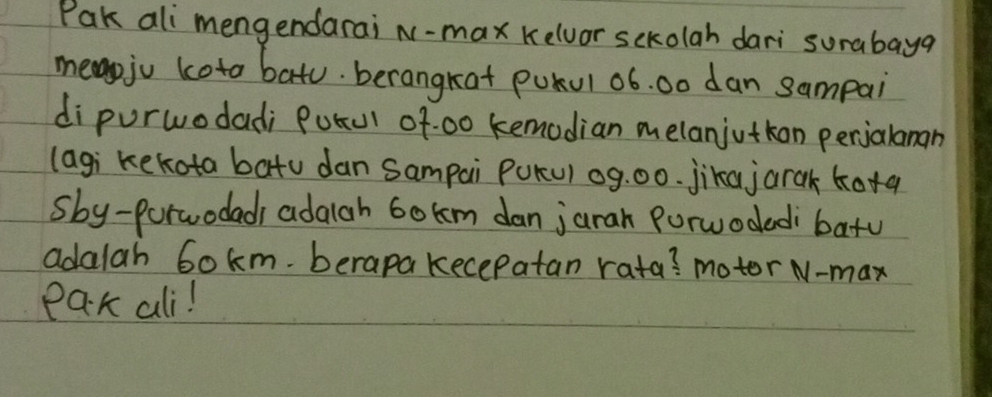 Pak ali mengendarai N-max keluar sekolah dari surabaya
menuju kota batu. berangkat pukul 06.00 dan sampai
di purwodadi pukul 07.00 kemudian melanjutkan perjalanan
lagi kekota batu dan sampai pukul 09.00. jika jarak kota
sby-purwodadi adalah 60 km dan jarak purwodadi batu
adalah 60 km. berapa kecepatan rata² motor N-max
pak ali!